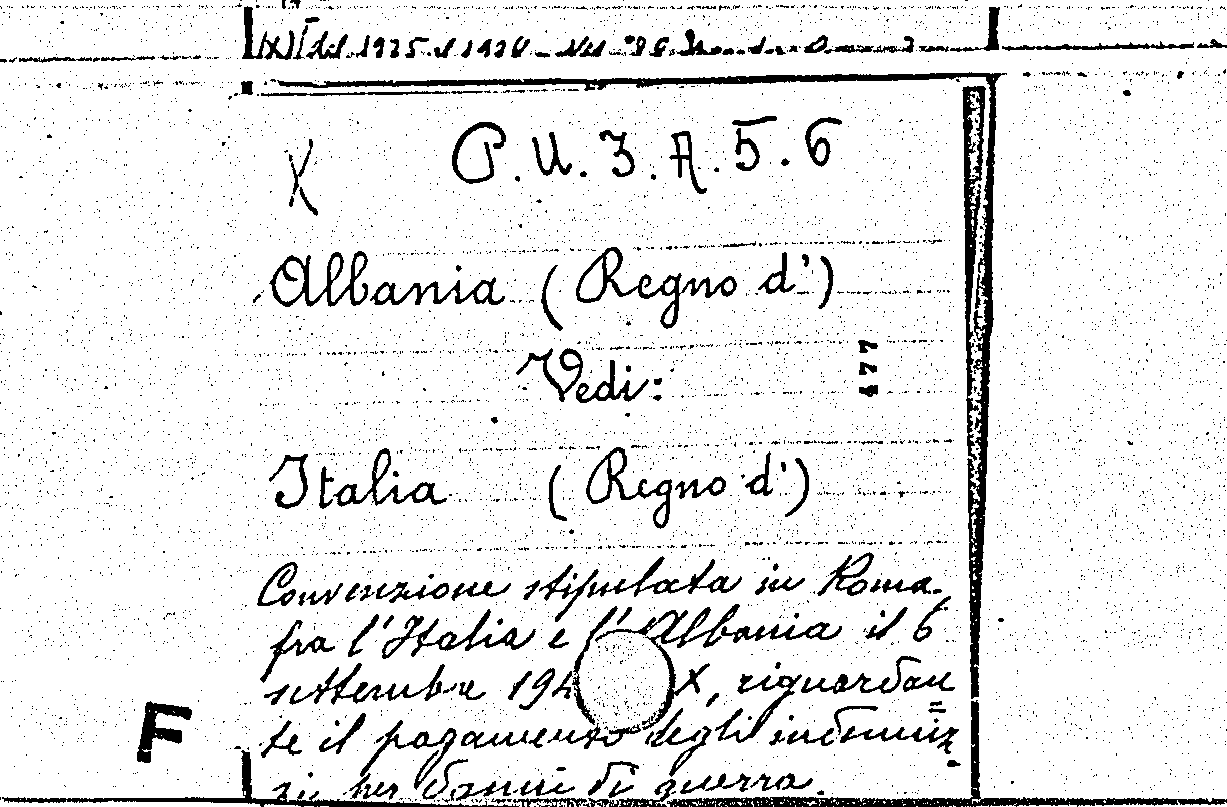 del 1925 il 1926
X P.U.3.A.5.6
Albania (Regno d')
Vedi:
477
Italia (Regno d')
Convenzione stipulata in Roma,
fra l'Italia e l'Albania il 6
settembre 194 X, riguardan
te il pagamento degli indenniz
zi per danni di guerra.
F